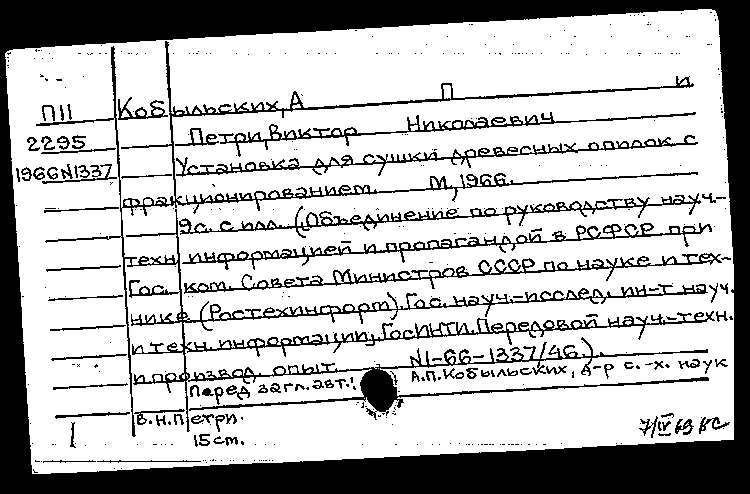 П11 Кобыльских, А П и
2295 Петри, Виктор Николаевич
1966N1337 Установка для сушки древесных опилок с
фракционированием. М, 1966.
9с. с илл. (Объединение по руководству науч.-
техн информацией и пропагандой в РСФСР при
Гос. ком. Совета Министров СССР по науке и тех-
нике (Ростехинформ). Гос. науч.-исслед. ин-т науч.
и техн. информации, ГосИНТИ. Передовой науч.-техн.
и производ. опыт. N1-66-1337/46.).
Перед загл. авт.: А.П.Кобыльских, д-р с.-х. наук
В.Н.Петри.
15см.
1 7/IV 69